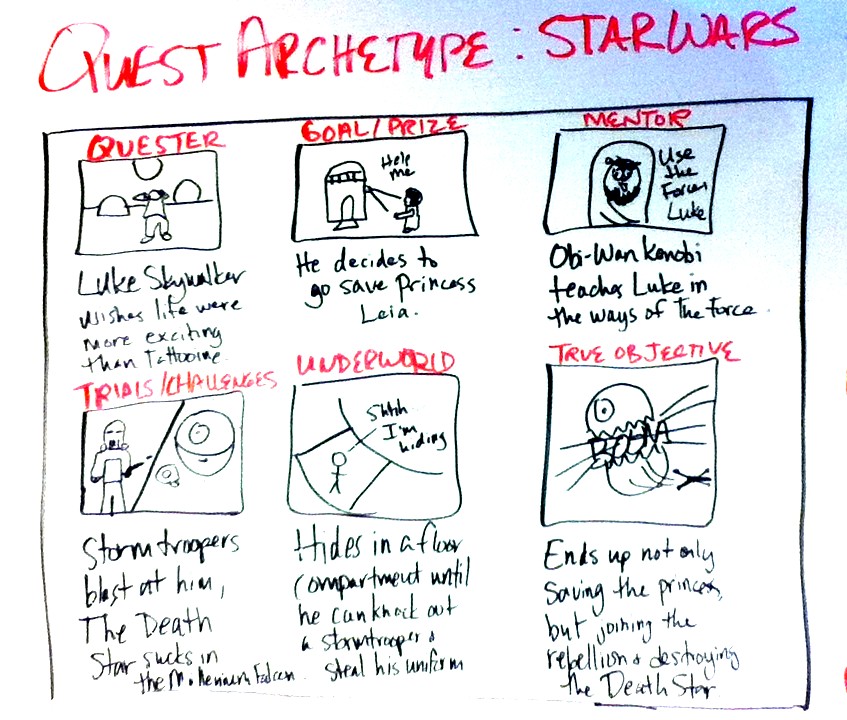 QUEST ARCHETYPE: STAR WARS
QUESTER
GOAL/PRIZE
MENTOR
Help
me
Use
the
Force
Luke
Luke Skywalker
wishes life were
more exciting
than Tattooine.
He decides to
go save Princess
Leia.
Obi-Wan Kenobi
teaches Luke in
the ways of The Force.
TRIALS/CHALLENGES
UNDERWORLD
TRUE OBJECTIVE
Shhh
I'm
hiding
BOOM
Stormtroopers
blast at him,
The Death
Star sucks in
the Millennium Falcon.
Hides in a floor
compartment until
he can knock out
a stormtrooper &
steal his uniform
Ends up not only
saving the princess,
but joining the
rebellion & destroying
the Death Star